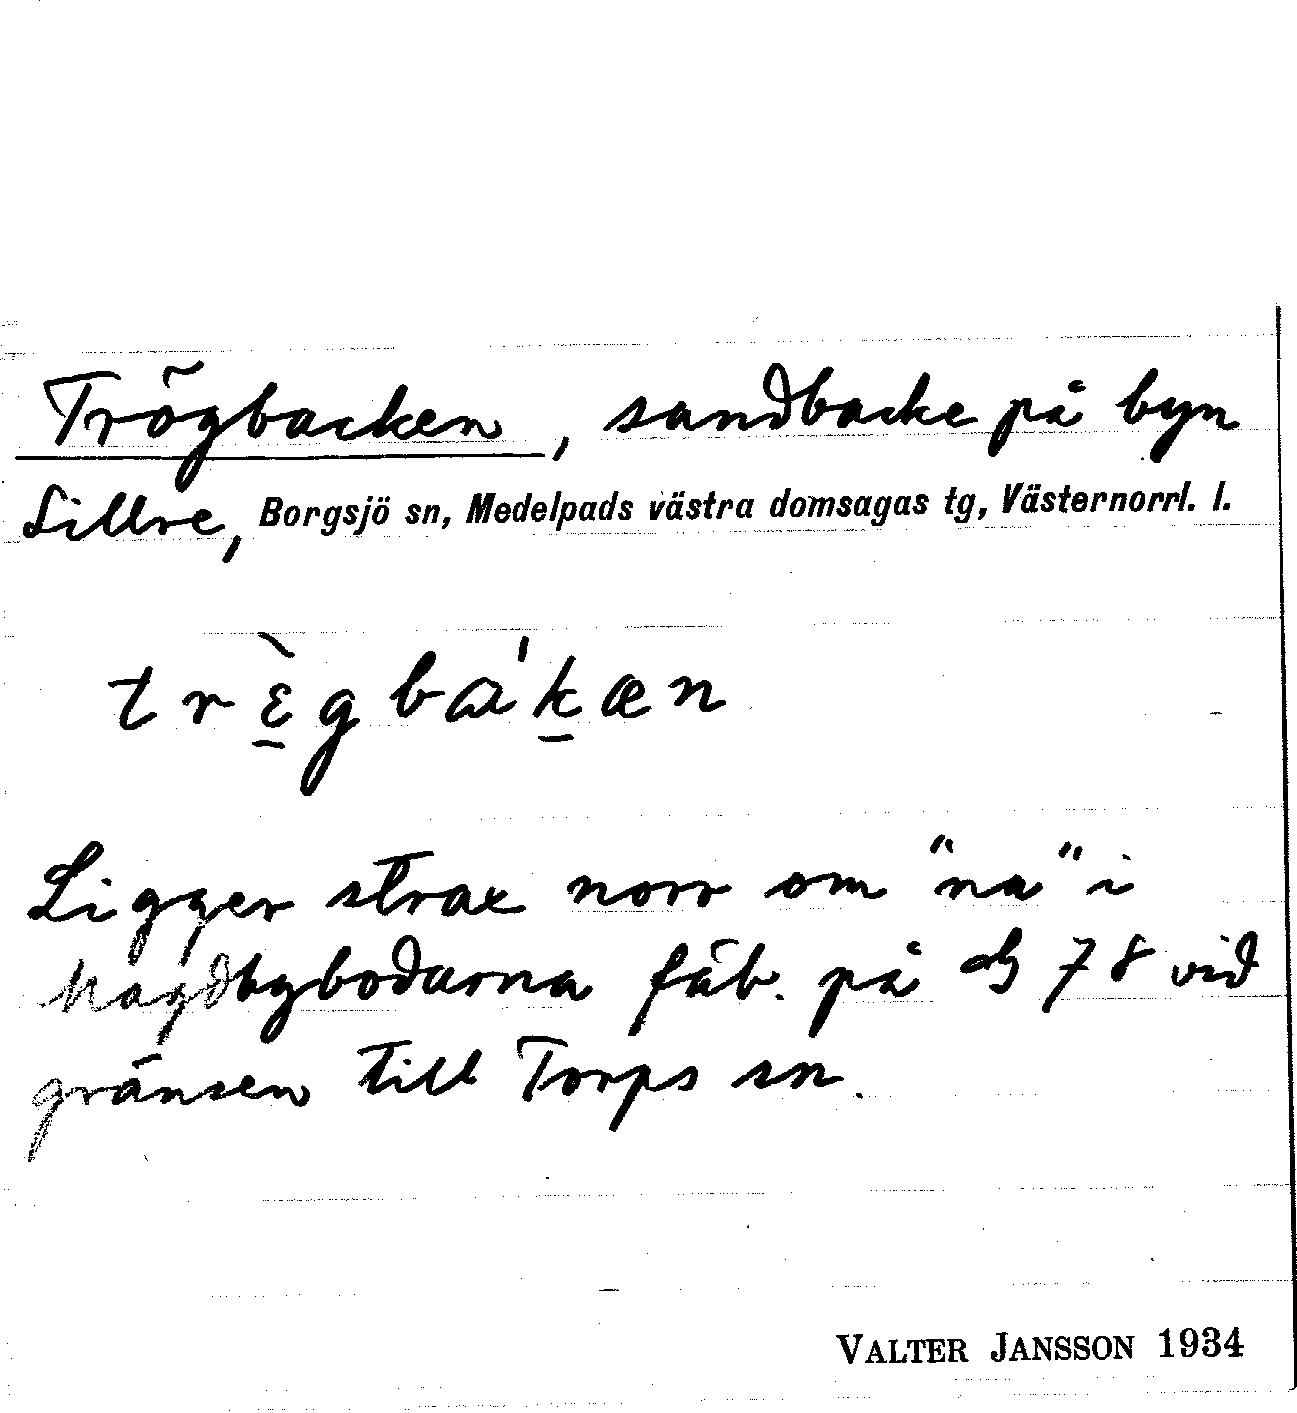 Trögbacken, sandbacke på byn
Sillre, Borgsjö sn, Medelpads västra domsagas tg, Västernorrl. l.
trɛ̱̀gba'ḵæn
Ligger strax norr om "na" i
Magdbybodarna fäb. på 78 vid
gränsen till Torps sn.
VALTER JANSSON 1934